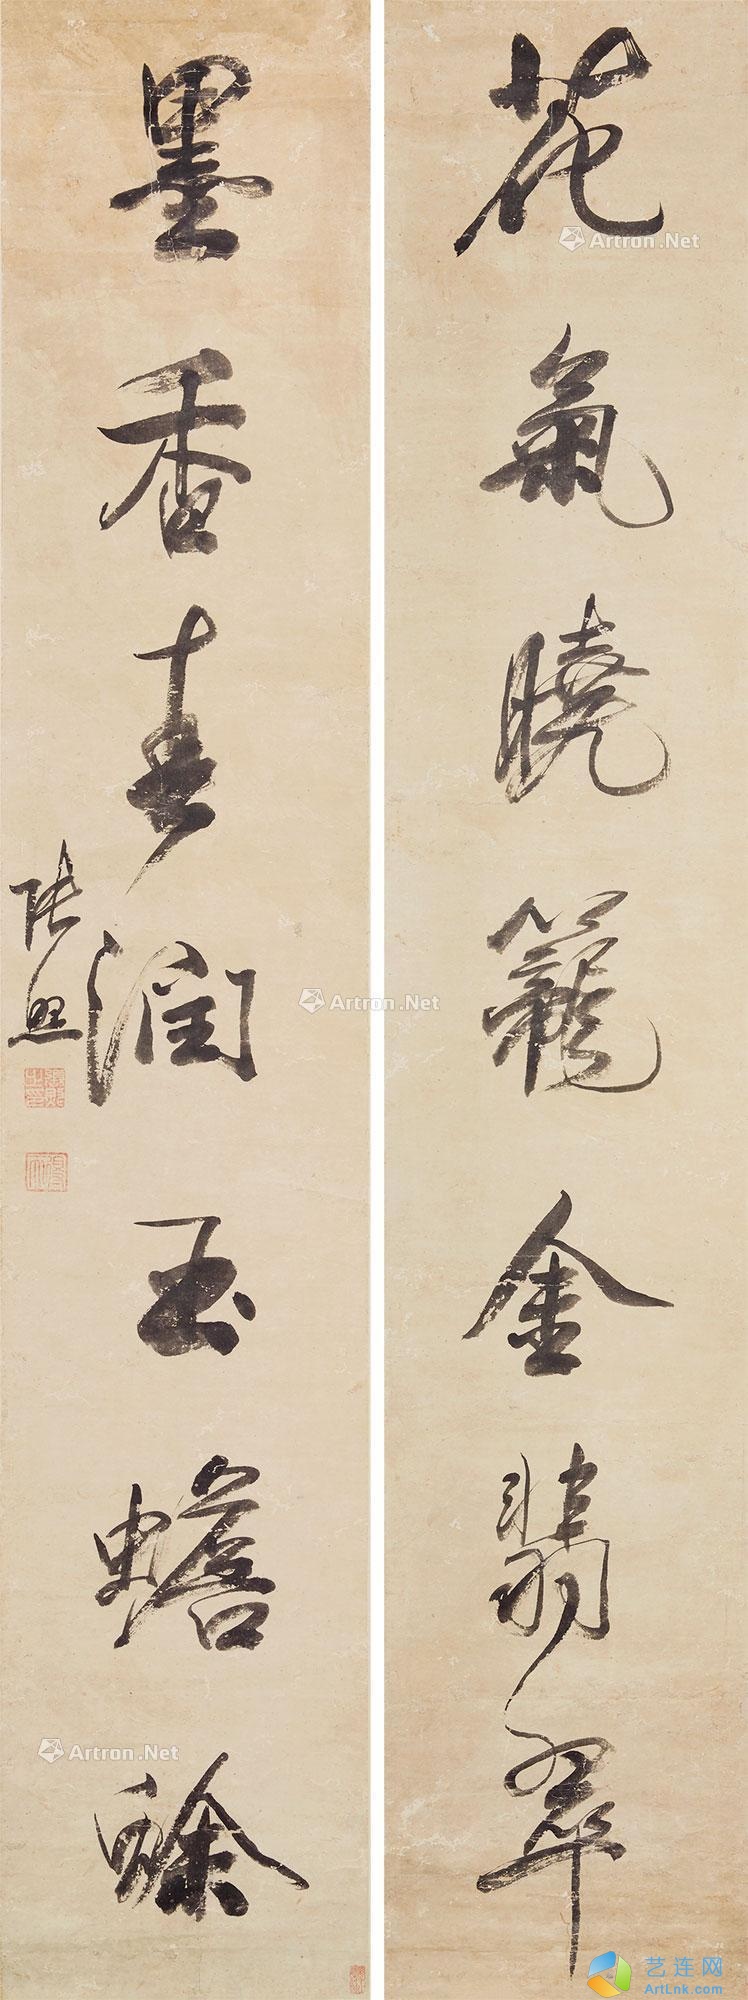 花氣曉籠金翡翠
墨香春潤玉蟾蜍
張照
Artron.Net
Artron.Net
Artron.Net
艺连网
ArtLnk.com